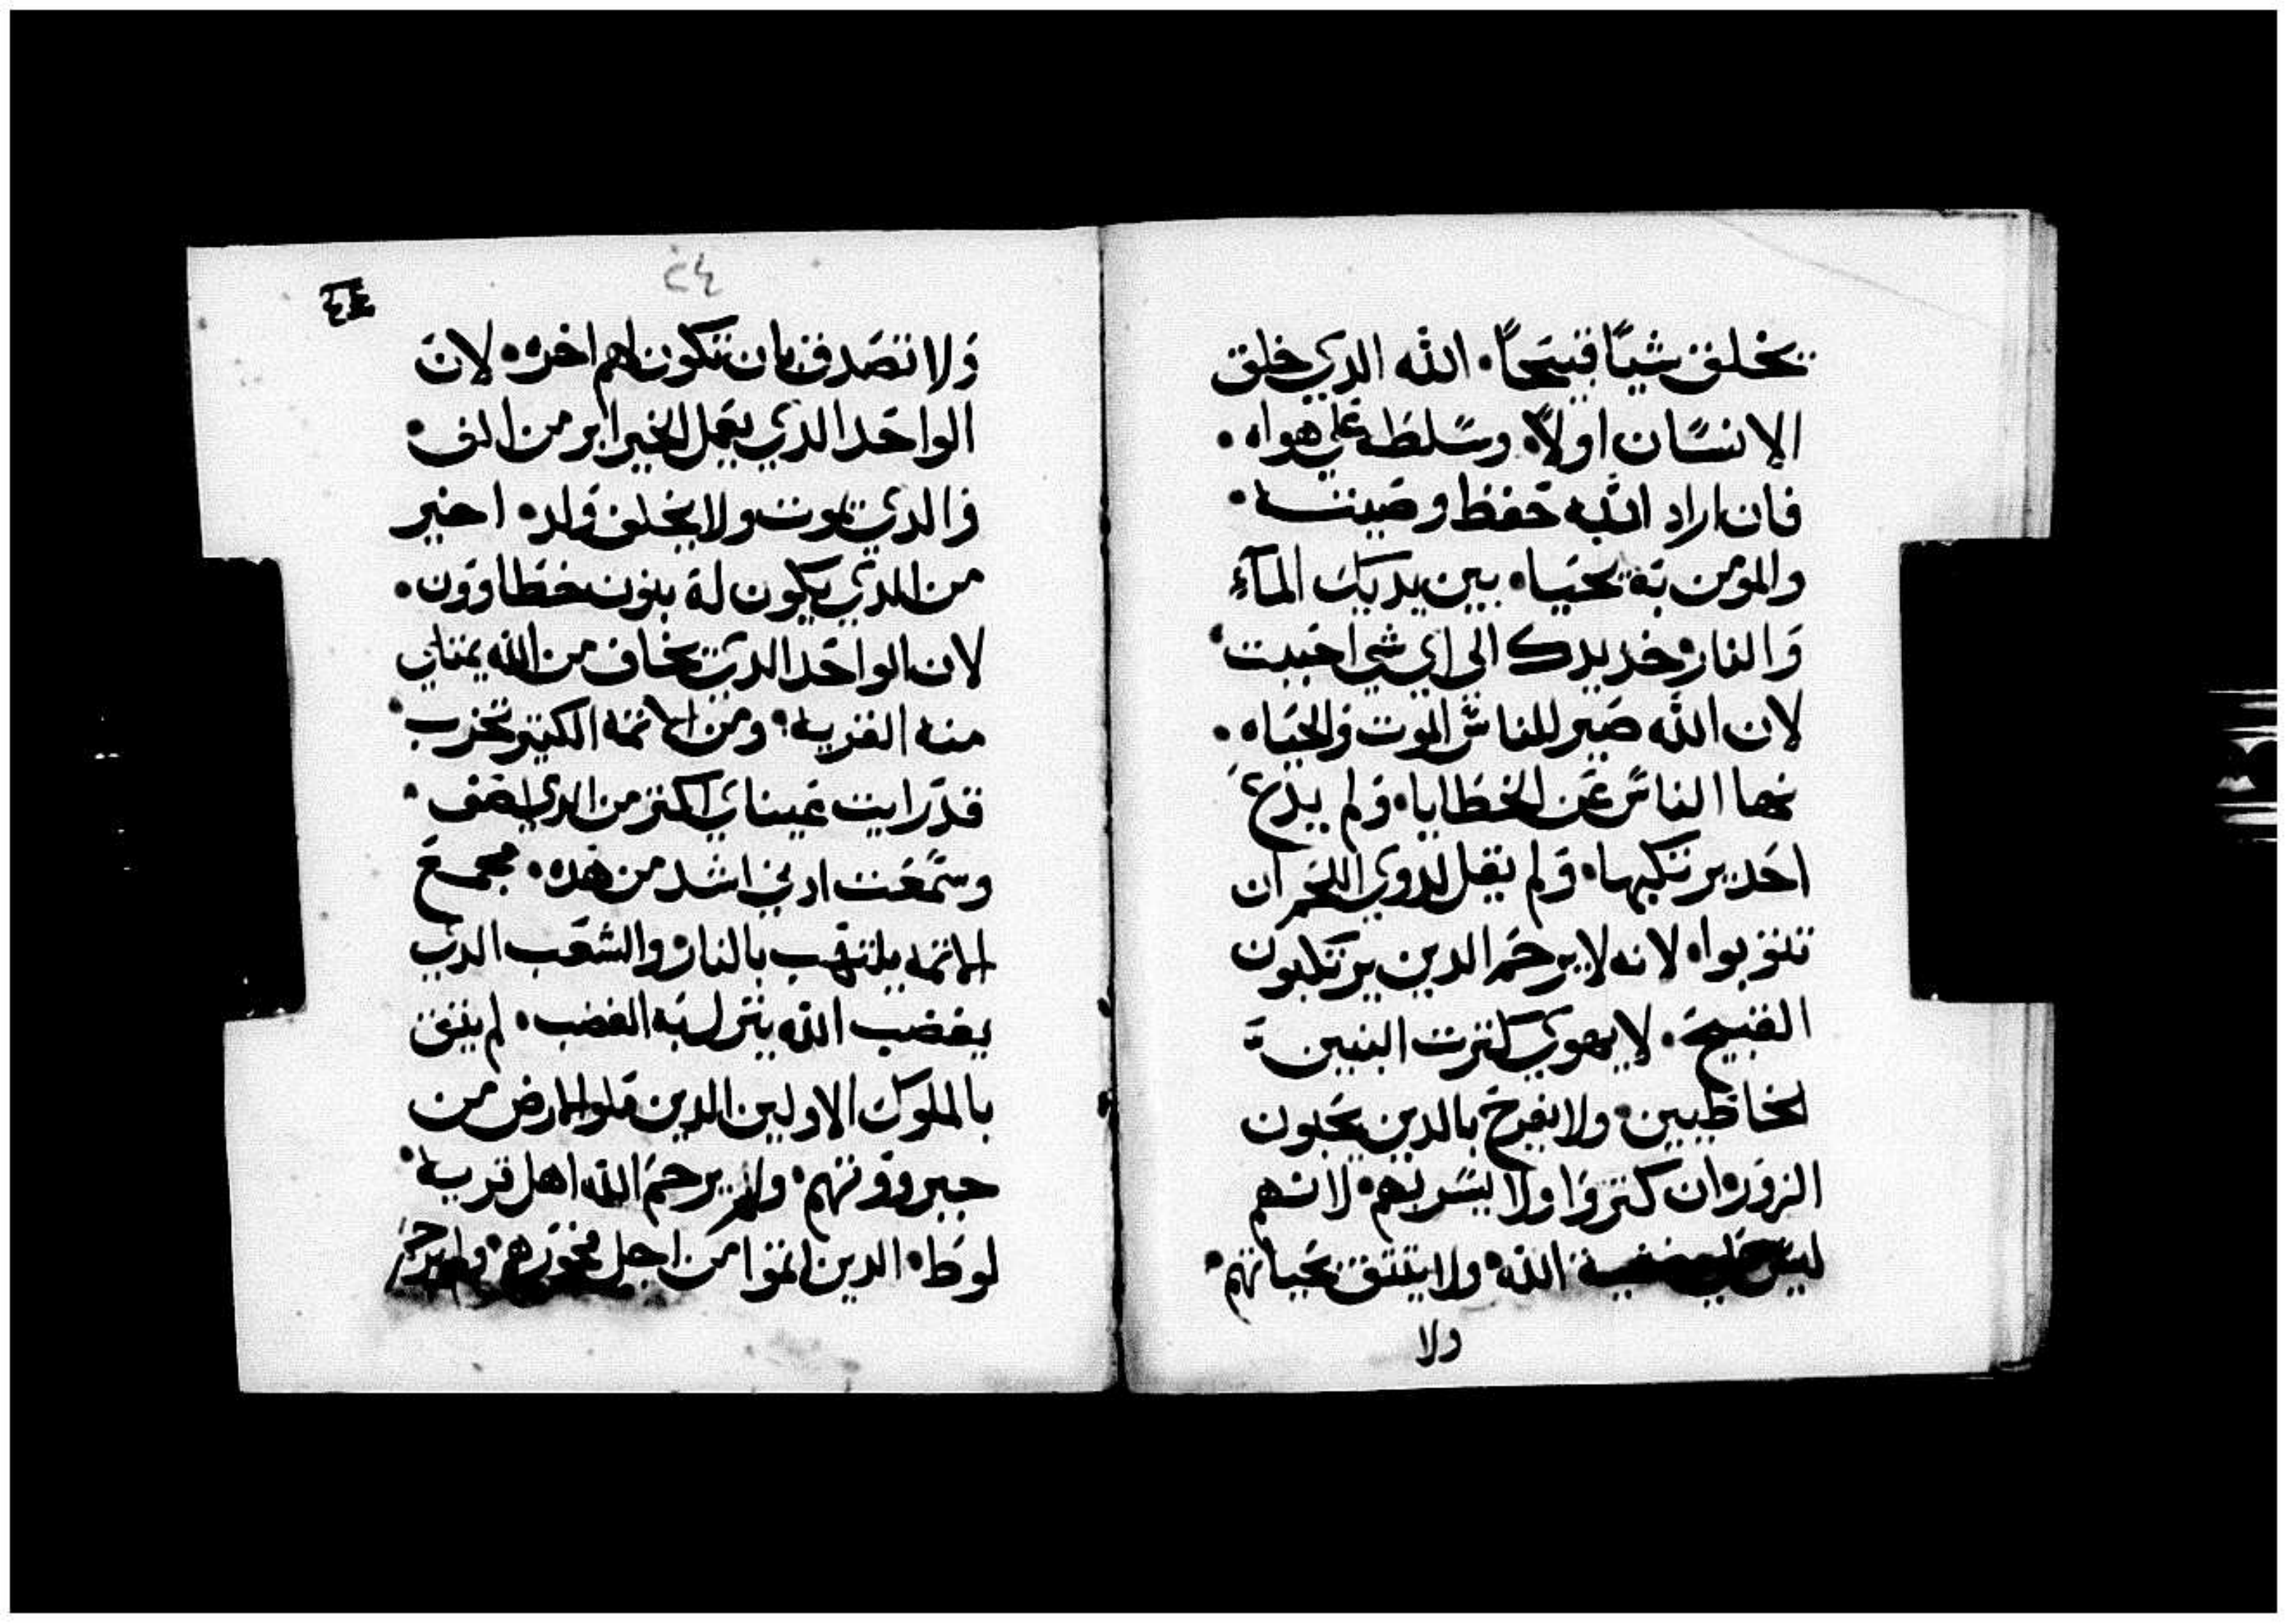 يخلق شيًا قبيحًا. الله الدي خلق
الانسان اولاً. وسلطه علي هواه.
فان اراد الله حفظ وصيته.
والمومن به يحياه بين يديك المآء
والنار. خد يدك الي اي شي احببت.
لان الله صير للناس الموت والحياه.
نها الناس عن الخطايا. ولم يدع
احد يرتكبها. ولم يقل لدوي اللحم ان
تتوبوا. لانه لا يرحم الدين يرتكبون
القبيح. لا يهوي كترت البنين
الخاطيين. ولا يفرح بالدين يحبون
الزور. ان كتروا ولا يسر بهم. لانهم
ليس الله. ولا يتق بحياتهم.
ولا
٢٤
ولا تصدق بان تكون لهم اخره. لان
الواحد الدي يعمل الخير ابر من الف.
والدي يموت ولا يخلف ولد. اخير
من الدي يكون له بنون خطاوون.
لان الواحد الدي يخاف من الله يمتلي
منه القريه. ومن الاتمه الكتير تخرب.
قد رايت عيناي اكتر من الدي اصف.
وسمعت ادني اشد من هده. مجمع
الاتمه يلتهب بالنار. والشعب الدي
يغضب الله ينزل به الغضب. لم يتق
بالملوك الاولين الدين ملوا الارض من
جبروتهم. ولم يرحم الله اهل قرية
لوط. الدين اتموا من اجل فخورهم. ولم يرحم